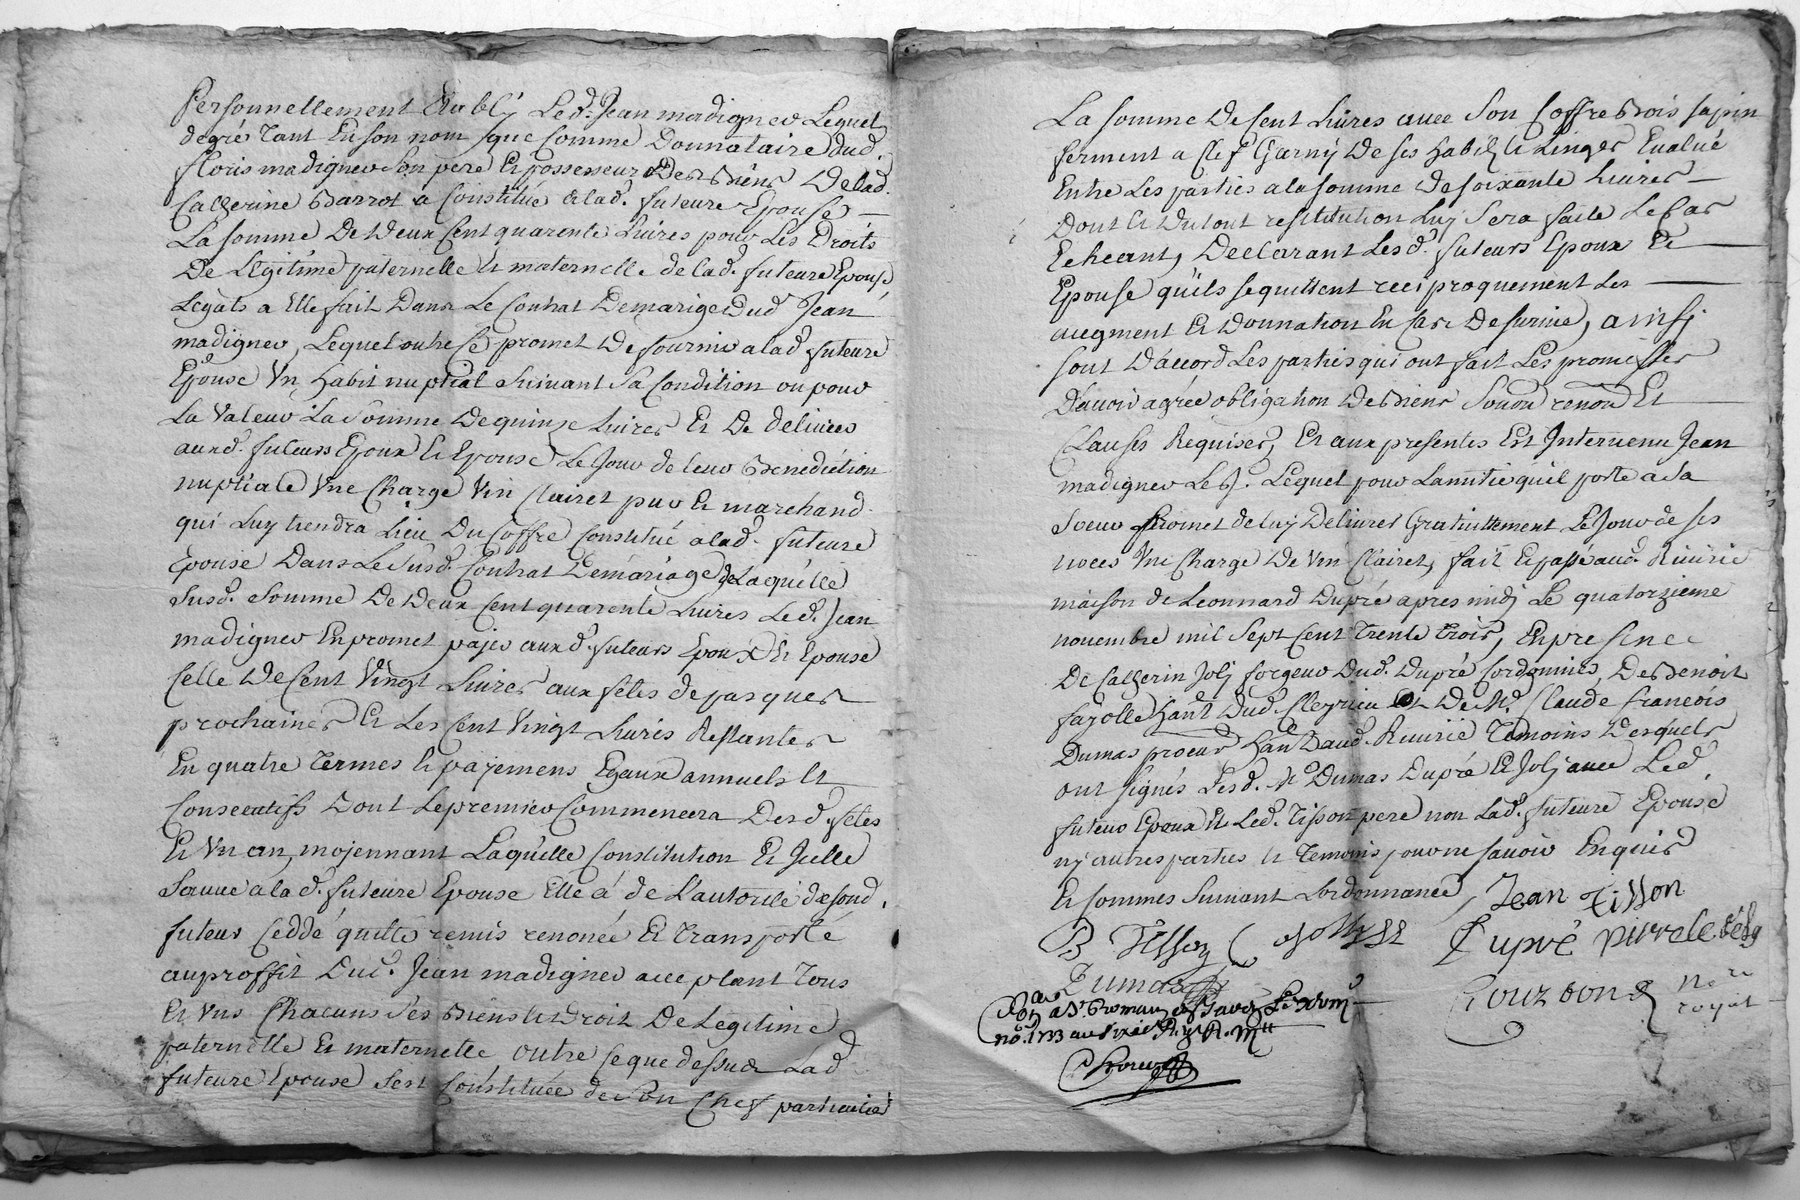 Personnellement Etably Led. Jean madignev Lequel
degré Tant En son nom que Comme Donnataire dud.
floris madignev son pere Et possesseur Des Biens De lad.
Catherine Barrot a Constitué a lad. future Epouse
La somme De Deux Cent quarente Livres pour Les Droits
De Legitime paternelle Et maternelle de lad. future Epouse
Legats a Elle fait Dans Le Contrat De marige Dud Jean
madignev, Lequel outre Ce promet De fournir a lad future
Epouse Vn habit nuptial Suivant Sa Condition ou pour
La Valeur La Somme De quinze Livres Et De delivrer
auxd. futeurs Epoux Et Epouse Le Jour de leur Benediction
nuptiale Vne Charge Vin Clairet pur Et marchand
qui Luy tiendra Lieu Du Coffre Constitué a lad. future
Epouse Dans Le Susd. Contrat De mariage De Laquelle
Susd. Somme De Deux Cent quarente Livres Led. Jean
madignev En promet payer auxd. futeurs Epoux Et Epouse
Celle De Cent Vingt Livres aux fetes de pasques
prochaines Et Les Cent Vingt Livres Restantes
En quatre Termes Et payemens Egaux annuels Et
Consecutifs Dont Le premier Commencera Desd. fetes
En Vn an, mojennant Laquelle Constitution Et Jcelle
Sauve a lad. future Epouse Elle a de L'autorité de sond.
futeur Ceddé quitté remis renoncé Et Transporté
au proffit Dud. Jean madignev acceptant Tous
Et Vns Chacuns Ses Biens Et Droit De Legitime
paternelle Et maternelle outre Ce que dessus Lad
future Epouse Sest Constituée de Son Chef particulier
La somme De Cent Livres avec Son Coffre Bois sapin
ferment a Clef Garny De ses habits Et Linges Evalué
Entre Les parties a la somme De soixante Livres
Dont Et Du tout restitution Luy Sera faite Le Cas
Echeant, Declarant Lesd. futeurs Epoux Et
Epouse quils se quittent reciproquement Les
augment Et Donnation En Cas De survie, ainsy
sont D'accord Les parties qui ont fait Les promesses
D'avoir agrée obligation De Biens Soum renon Et
Clauses Requises, Et aux presentes Est Intervenu Jean
madignev Le J. Lequel pour Lamitié quil porte a Sa
Soeur promet de Luy Delivrer Gratuittement Le Jour de ses
noces Vne Charge De Vin Clairet, fait Et passé aud. Rivirie
maison de Leonnard Dupré apres midy Le quatorzieme
novembre mil Sept Cent Trente Trois, En presence
De Catherin Jolj forgeur Dud. Dupré Cordonnier, De Benoit
fayolle hant Dud. Et De Mr Claude francois
Dumas procur hant aud. Rivirie Temoins Desquels
ont signés Lesd. Mr Dumas Dupré Et Jolj avec Led.
futeur Epoux Et Led. Tisson pere non Lad. future Epouse
ny autres parties Et Temoins pour ne Savoir Enquis
Et sommes Suivant Lordonnance, Jean Tisson
B Tisson Jolly Dupré
Dumas
Gourdon Nre
royal